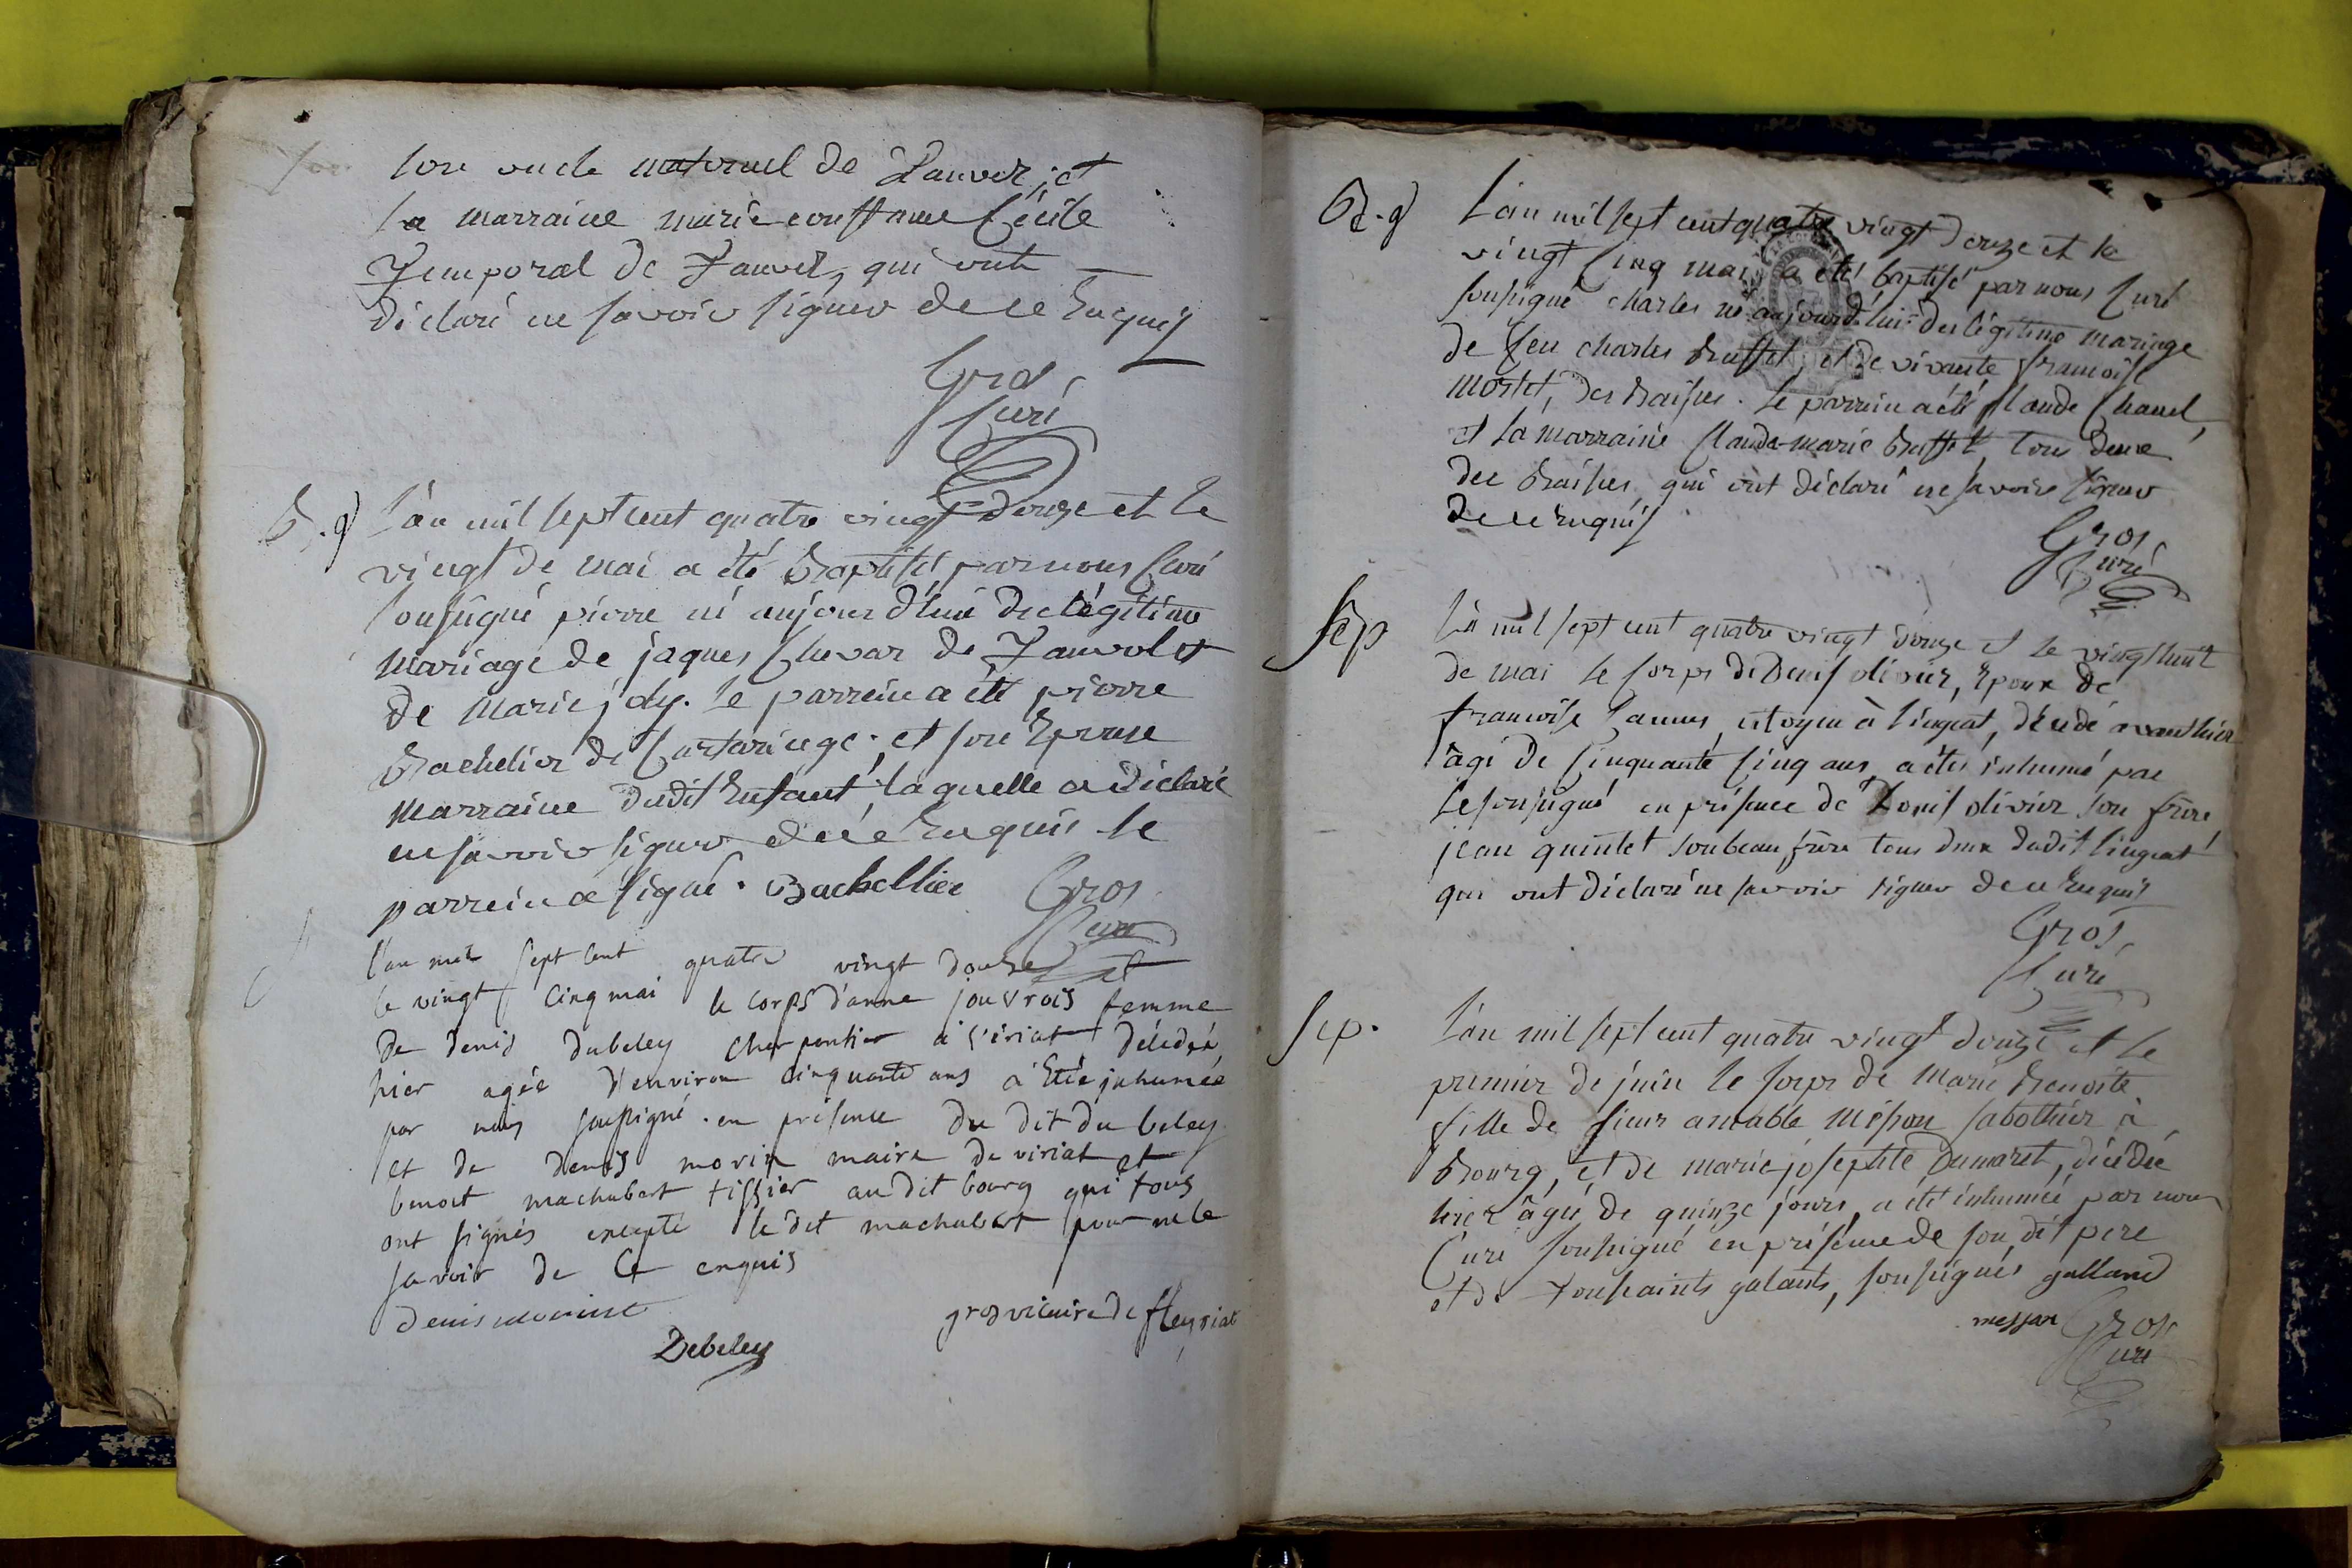 son oncle maternel de Januver; et
la marraine marie constance Cécile
Temporal de Januver, qui ont
déclaré ne savoir signer de ce Enquis
Gros,
Curé
B.g
L'an mil sept cent quatre vingt douze et le
vingt de mai a été Baptisé par nous Curé
soussigné pierre né aujourd'hui du légitime
mariage de jaques Chevar de et
de Marie joly. le parrein a été pierre
Bachelier de et son Epouse
Marraine dudit Enfant, laquelle a déclaré
ne savoir signer de ce Enquis le
parrein a signé. Bachellier
Gros
Curé
l'an mil sept cent quatre vingt douze et
le vingt cinq mai le corps d'anne jouvrois femme
de denis dubeley charpentier a viriat décédée
hier agée d'environ cinquante ans a Etée inhumée
par nous soussigné en présence du dit du beley
et de denis morin maire de viriat et
benoit machubert tissier au dit bourg qui tous
ont signés excepté le dit machubert pour ne le
savoir de ce enquis
denis morin
Debeley
gros vicaire de fleyriat
Bt.g
L'an mil sept cent quatre vingt douze et le
vingt Cinq mai a été baptisé par nous Curé
soussigné charles né aujourd'hui du légitime mariage
de feu charles Buffet, et de vivante francoise
Mortet, des Baisses. le parrein a été Claude Chanel,
et la marraine Claude-marie Buffet, tous deux
des Baisses, qui ont déclaré ne savoir signer
de ce Enquis
Gros,
Curé
Sep
L'an mil sept cent quatre vingt douze et le vingt huit
de mai le Corps de Denis olivier, Epoux de
francoise Januus, citoyen à tingeat, décédé avant hier
âgé de Cinquante Cinq ans, a été inhumé par
le soussigné en présence de Denis olivier son frère
jean quintet son beau frère tous deux dudit tingeat
qui ont déclaré ne savoir signer de ce Enquis
Gros,
Curé
Sep.
L'an mil sept cent quatre vingt douze et le
premier de juin le Corps de Marie Benoite
fille de sieur amable Messon sabothier à
Bourg, et de marie josephte Dumaret, décédée
hier âgée de quinze jours, a été inhumée par nous
Curé soussigné en présence de son dit pere
et de Toussaints galants, soussignés galland
messon
Gros
Curé